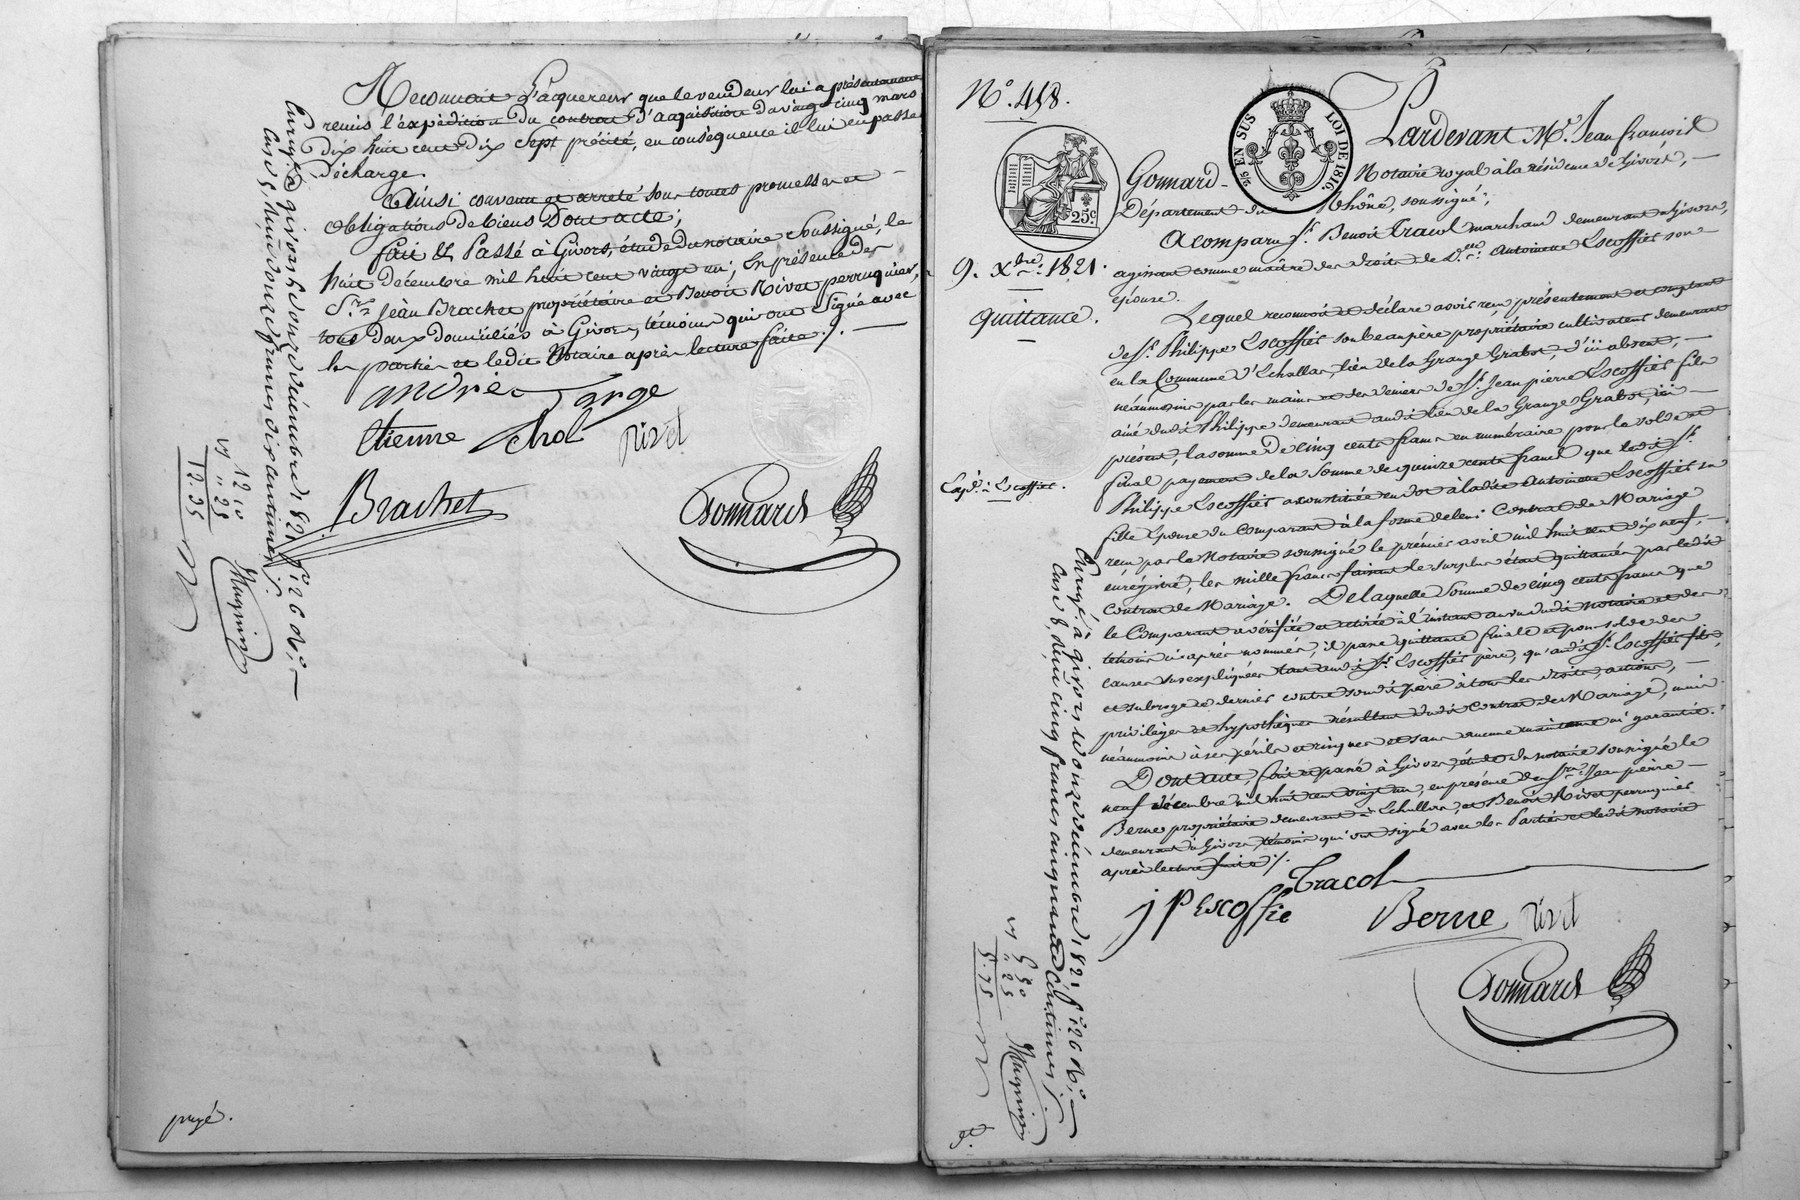 Reconnait l'acquereur que le vendeur lui a présentement
remis l'expédition du contrat d'acquisition du vingt cinq mars
dix huit cent dix sept précité, en conséquence il lui en passe
décharge.
Ainsi convenu et arreté sous toutes promesses et
obligations de biens Dont acte;
fait & Passé à Givors, étude du notaire soussigné, le
huit décembre mil huit cent vingt un; En présence des
S.rs Jean Brachet propriétaire et Benoit Rivet perruquier,
tous deux domiciliés à Givors, témoins qui ont signé avec
les parties et ledit Notaire après lecture faite ./.
andré Farge
Etienne Chol
rivet
Brachet
Gonnard
Enregé à givors le onze décembre 1821 f.o 26 v.o
Case 5, reçu douze francs dix centimes
12 10
" 25
12.35
Magnin
payé.
N.o 458.
25.c
5/2 EN SUS LOI DE 1816
9. X.bre 1821.
Quittance.
Exp.é à Escoffier.
Pardevant M.e Jean François
Gonnard Notaire royal à la résidence de Givors,
Département du Rhône, soussigné;
A comparu S.r Benoit Tracol marchand demeurant à Givors,
agissant comme maître des droits de D.me Antoinette Escoffier son
épouse.
Lequel reconnoit et déclare avoir reçu présentement et comptant
de S.r Philippe Escoffier son beau père propriétaire cultivateur demeurant
en la Commune d'Echallas, lieu de la Grange Grabot, d'ici absent,
néanmoins par les mains et des deniers de S.r Jean pierre Escoffier fils
ainé dudit Philippe demeurant audit lieu de la Grange Grabot, ici
présent, la somme de cinq cents francs en numéraire pour le solde et
final payement de la somme de quinze cents francs que ledit S.r
Philippe Escoffier a constituée en dot à ladite Antoinette Escoffier sa
fille Epouse du Comparant à la forme de leur Contrat de Mariage
reçu par le Notaire soussigné le premier avril mil huit cent dix neuf,
enrégistré, les mille francs faisant le surplus étant quittancés par ledit
Contrat de Mariage. De laquelle somme de cinq cents francs que
le Comparant a vérifiée et retirée à l'instant au vu dudit notaire et des
témoins ci après nommés, il passe quittance finale et pour solde des
causes sus expliquées tant audit S.r Escoffier père, qu'audit S.r Escoffier fils,
et subroge ce dernier contre son dit père à tous les droits, actions,
priviléges et hypothèques résultant dudit Contrat de Mariage, mais
néanmoins à ses périls et risques et sans aucune maintenue ni garantie.
Dont acte, fait et passé à Givors, étude du notaire soussigné le
neuf décembre mil huit cent vingt un, en présence des S.rs Jean pierre
Berne propriétaire demeurant à Echallas, et Benoit Rivet perruquier
demeurant à Givors, témoins qui ont signé avec les Parties et ledit notaire
après lecture faite ./.
Tracol
j P Escoffie
Berne
rivet
Gonnard
Enregé à givors le onze décembre 1821 f.o 26 v.o
Case 8, reçu cinq francs cinquante centimes
5 50
" 25
5.75
Magnin